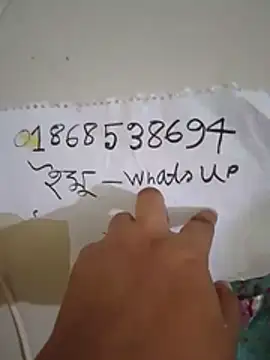 01868538694
ইমু - Whats UP